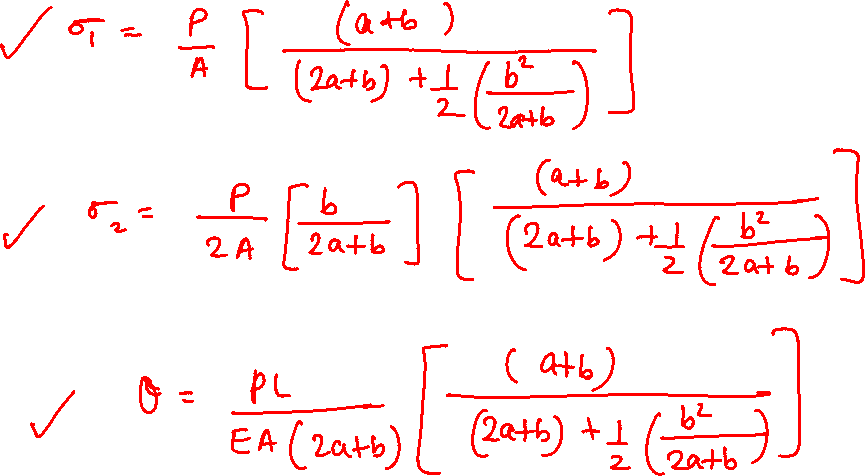 ✓ σ₁ = P/A [ (a+b) / ( (2a+b) + 1/2 ( b²/(2a+b) ) ) ]
✓ σ₂ = P/2A [ b/(2a+b) ] [ (a+b) / ( (2a+b) + 1/2 ( b²/(2a+b) ) ) ]
✓ θ = PL/(EA(2a+b)) [ (a+b) / ( (2a+b) + 1/2 ( b²/(2a+b) ) ) ]